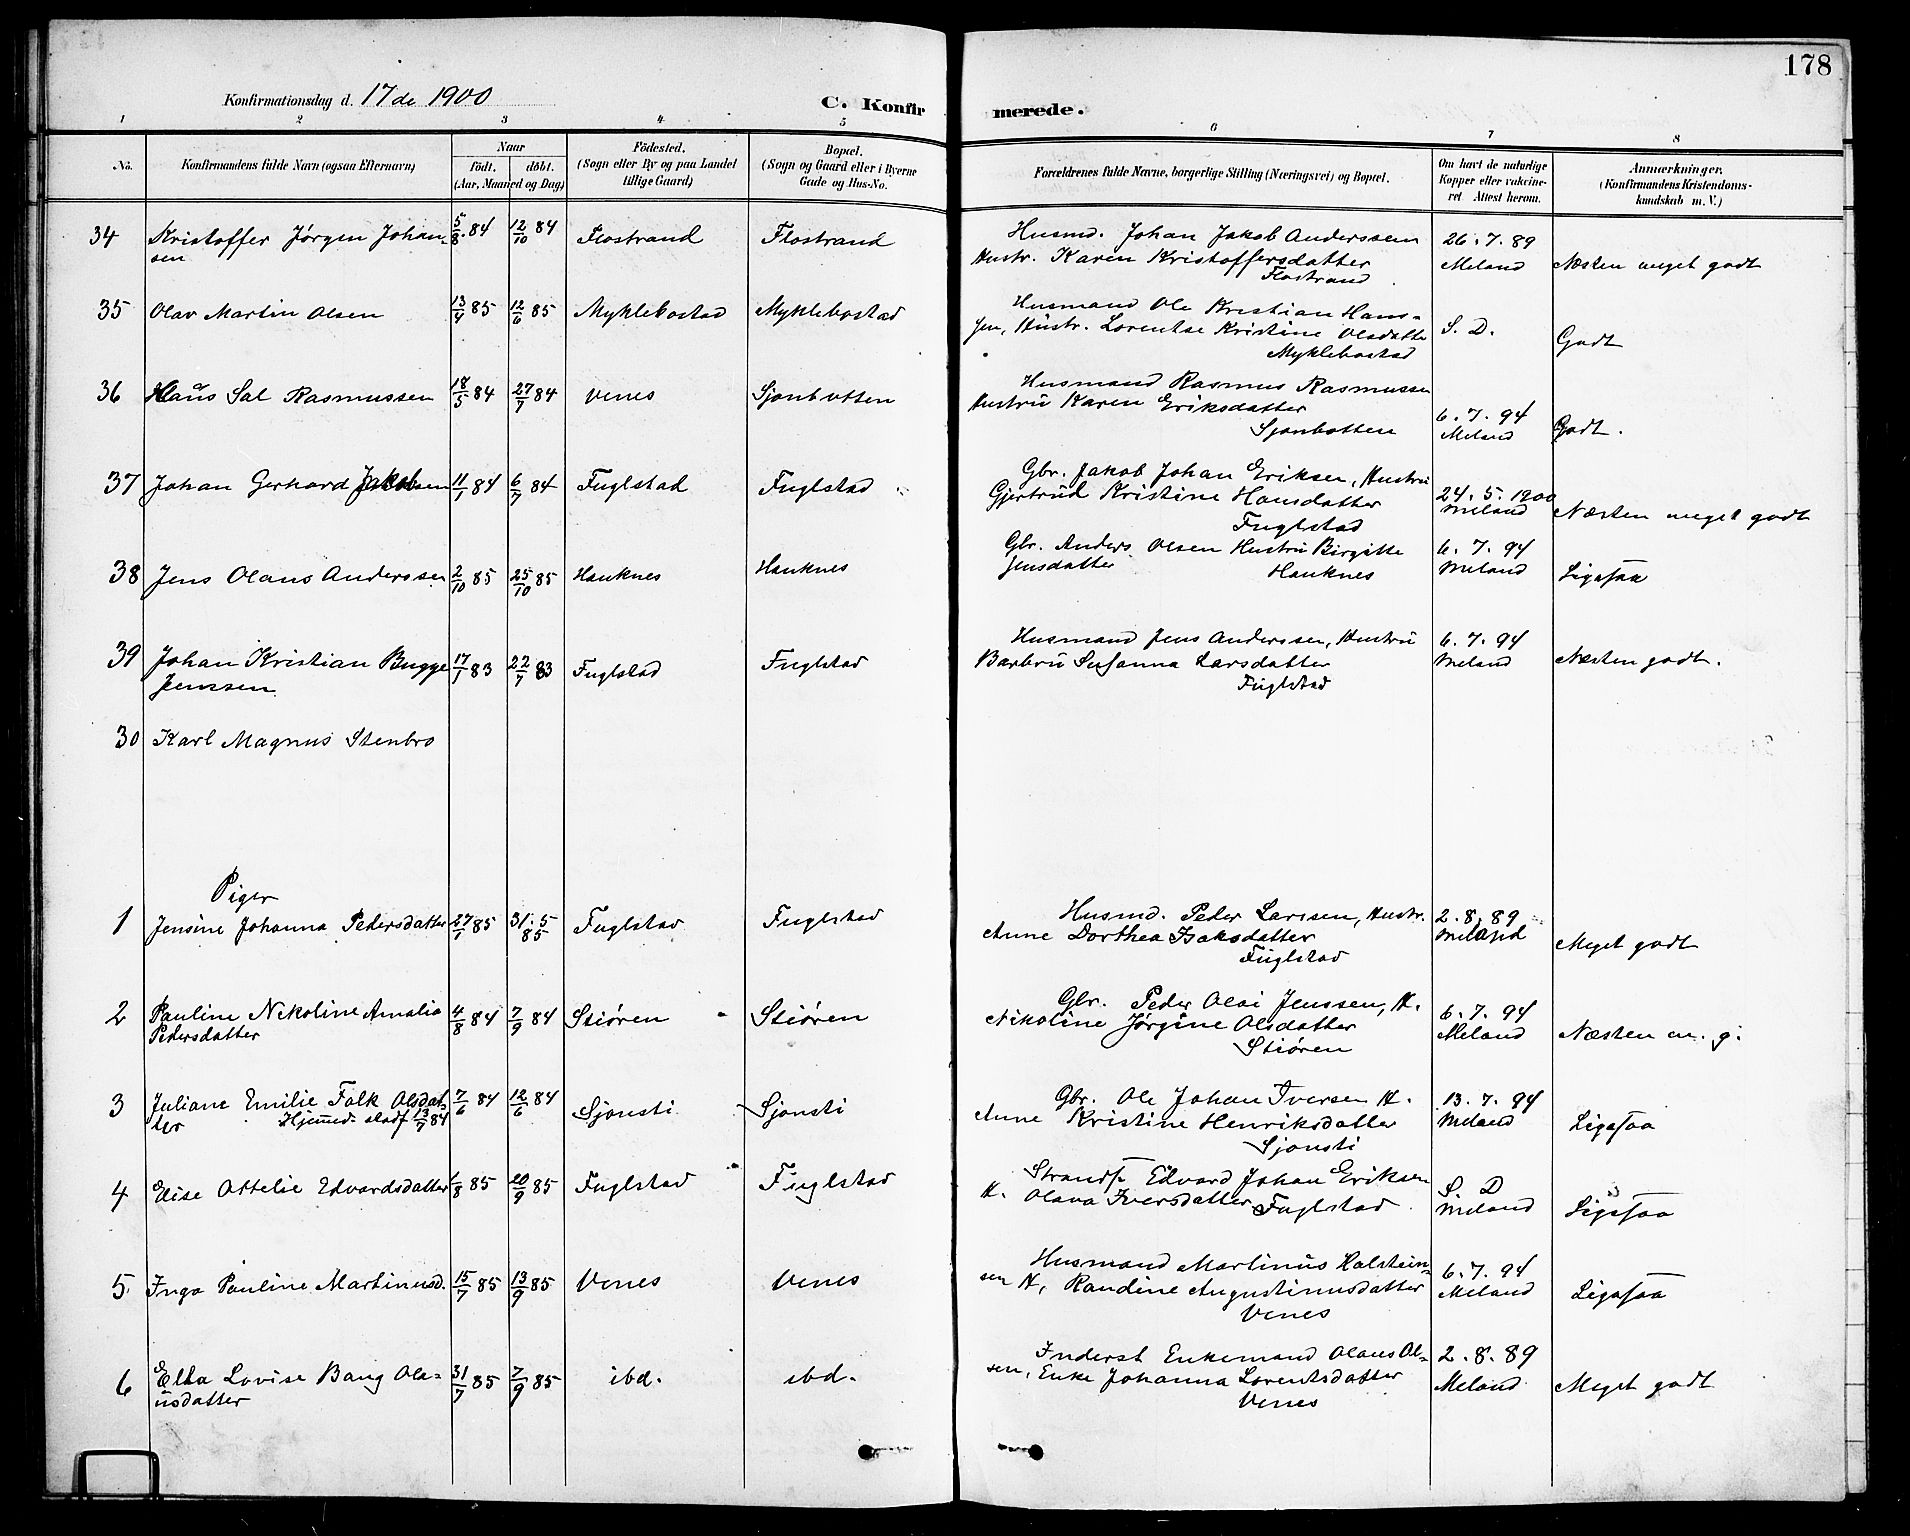 178
Konfirmationsdag d. 17de 1900
C. Konfirmerede.
1 2 3 4 5 6 7 8
No. Konfirmandens fulde Navn (ogsaa Efternavn) Naar födt. döbt. (Aar, Maaned og Dag) Födested. (Sogn eller By og paa Landet tillige Gaard) Bopæl. (Sogn og Gaard eller i Byerne Gade og Hus-No. Forældrenes fulde Navne, borgerlige Stilling (Næringsvei) og Bopæl. Om havt de naturlige Kopper eller vakcineret Attest herom. Anmærkninger. (Konfirmandens Kristendomskundskab m. V.)
34 Kristoffer Jørgen Johan- 5/8 84 12/10 84 Flostrand Flostrand Husmd. Johan Jakob Anderssen 26.7.89
sen Hustr. Karen Kristoffersdatter Meland Næsten meget godt
Flostrand
35 Olav Martin Olsen 13/4 85 12/6 85 Myklebostad Myklebostad Husmand Ole Kristian Han-
sen, Hustr. Lorentse Kristine Olsdatter S. D. Godt
Myklebostad
36 Klaus Sal Rasmussen 18/5 84 27/7 84 Venes Sjonbotten Husmand Rasmus Rasmussen
Hustru Karen Eriksdatter 6.7.94
Sjonbotten Meland Godt.
37 Johan Gerhard Jakobsen 11/1 84 6/7 84 Fuglstad Fuglstad Gbr. Jakob Johan Eriksen, Hustru
Gjertrud Kristine Hansdatter 24.5.1900
Fuglstad Meland Næsten meget godt
38 Jens Olaus Anderssen 2/10 85 25/10 85 Hauknes Hauknes Gbr. Anders Olsen Hustru Birgitte 6.7.94
Jensdatter Hauknes Meland Ligesaa
39 Johan Kristian Bugge 17/1 83 22/7 83 Fuglstad Fuglstad Husmand Jens Anderssen, Hustru 6.7.94
Jenssen Barbru Susanna Larsdatter Meland Næsten godt.
Fuglstad
30 Karl Magnus Stenbro
Piger
1 Jensine Johanna Pedersdatter 27/1 85 31.5/85 Fuglstad Fuglstad Husmd. Peder Larssen, Hustr. 2.8.89
Anne Dorthea Isaksdatter Meland Meget godt
Fuglstad
2 Pauline Nekoline Amalia 4/8 84 7/9 84 Stiøren Stiøren Gbr. Peder Olai Jenssen, H. 6.7.94
Pedersdatter Nikoline Jørgine Olsdatter Meland Næsten m. g.
Stiøren
3 Juliane Emilie Falk Olsdat- 7/6 84 12/6 84 Sjonsti Sjonsti Gbr. Ole Johan Iversen H. 13.7.94
ter Hjemmed. stadf 13/7 84 Anne Kristine Henriksdatter Meland Ligesaa
Sjonsti
4 Elise Ottelie Edvardsdatter 1/8 85 20/9 85 Fuglstad Fuglstad Strands. Edvard Johan Eriksen S. D
H. Olava Iversdatter Fuglstad Meland Ligesaa
5 Inga Pauline Martinusd. 15/7 85 13/9 85 Venes Venes Husmand Martinus Holstein- 6.7.94
sen H, Randine Augustinusdatter Meland Ligesaa
Venes
6 Elka Lovise Bang Ola- 31/7 85 7/9 85 ibd. ibd. Inderst Enkemand Olaus Ol- 2.8.89
usdatter sen, Enke Johanna Lorentsdatter Meland Meget godt
Venes